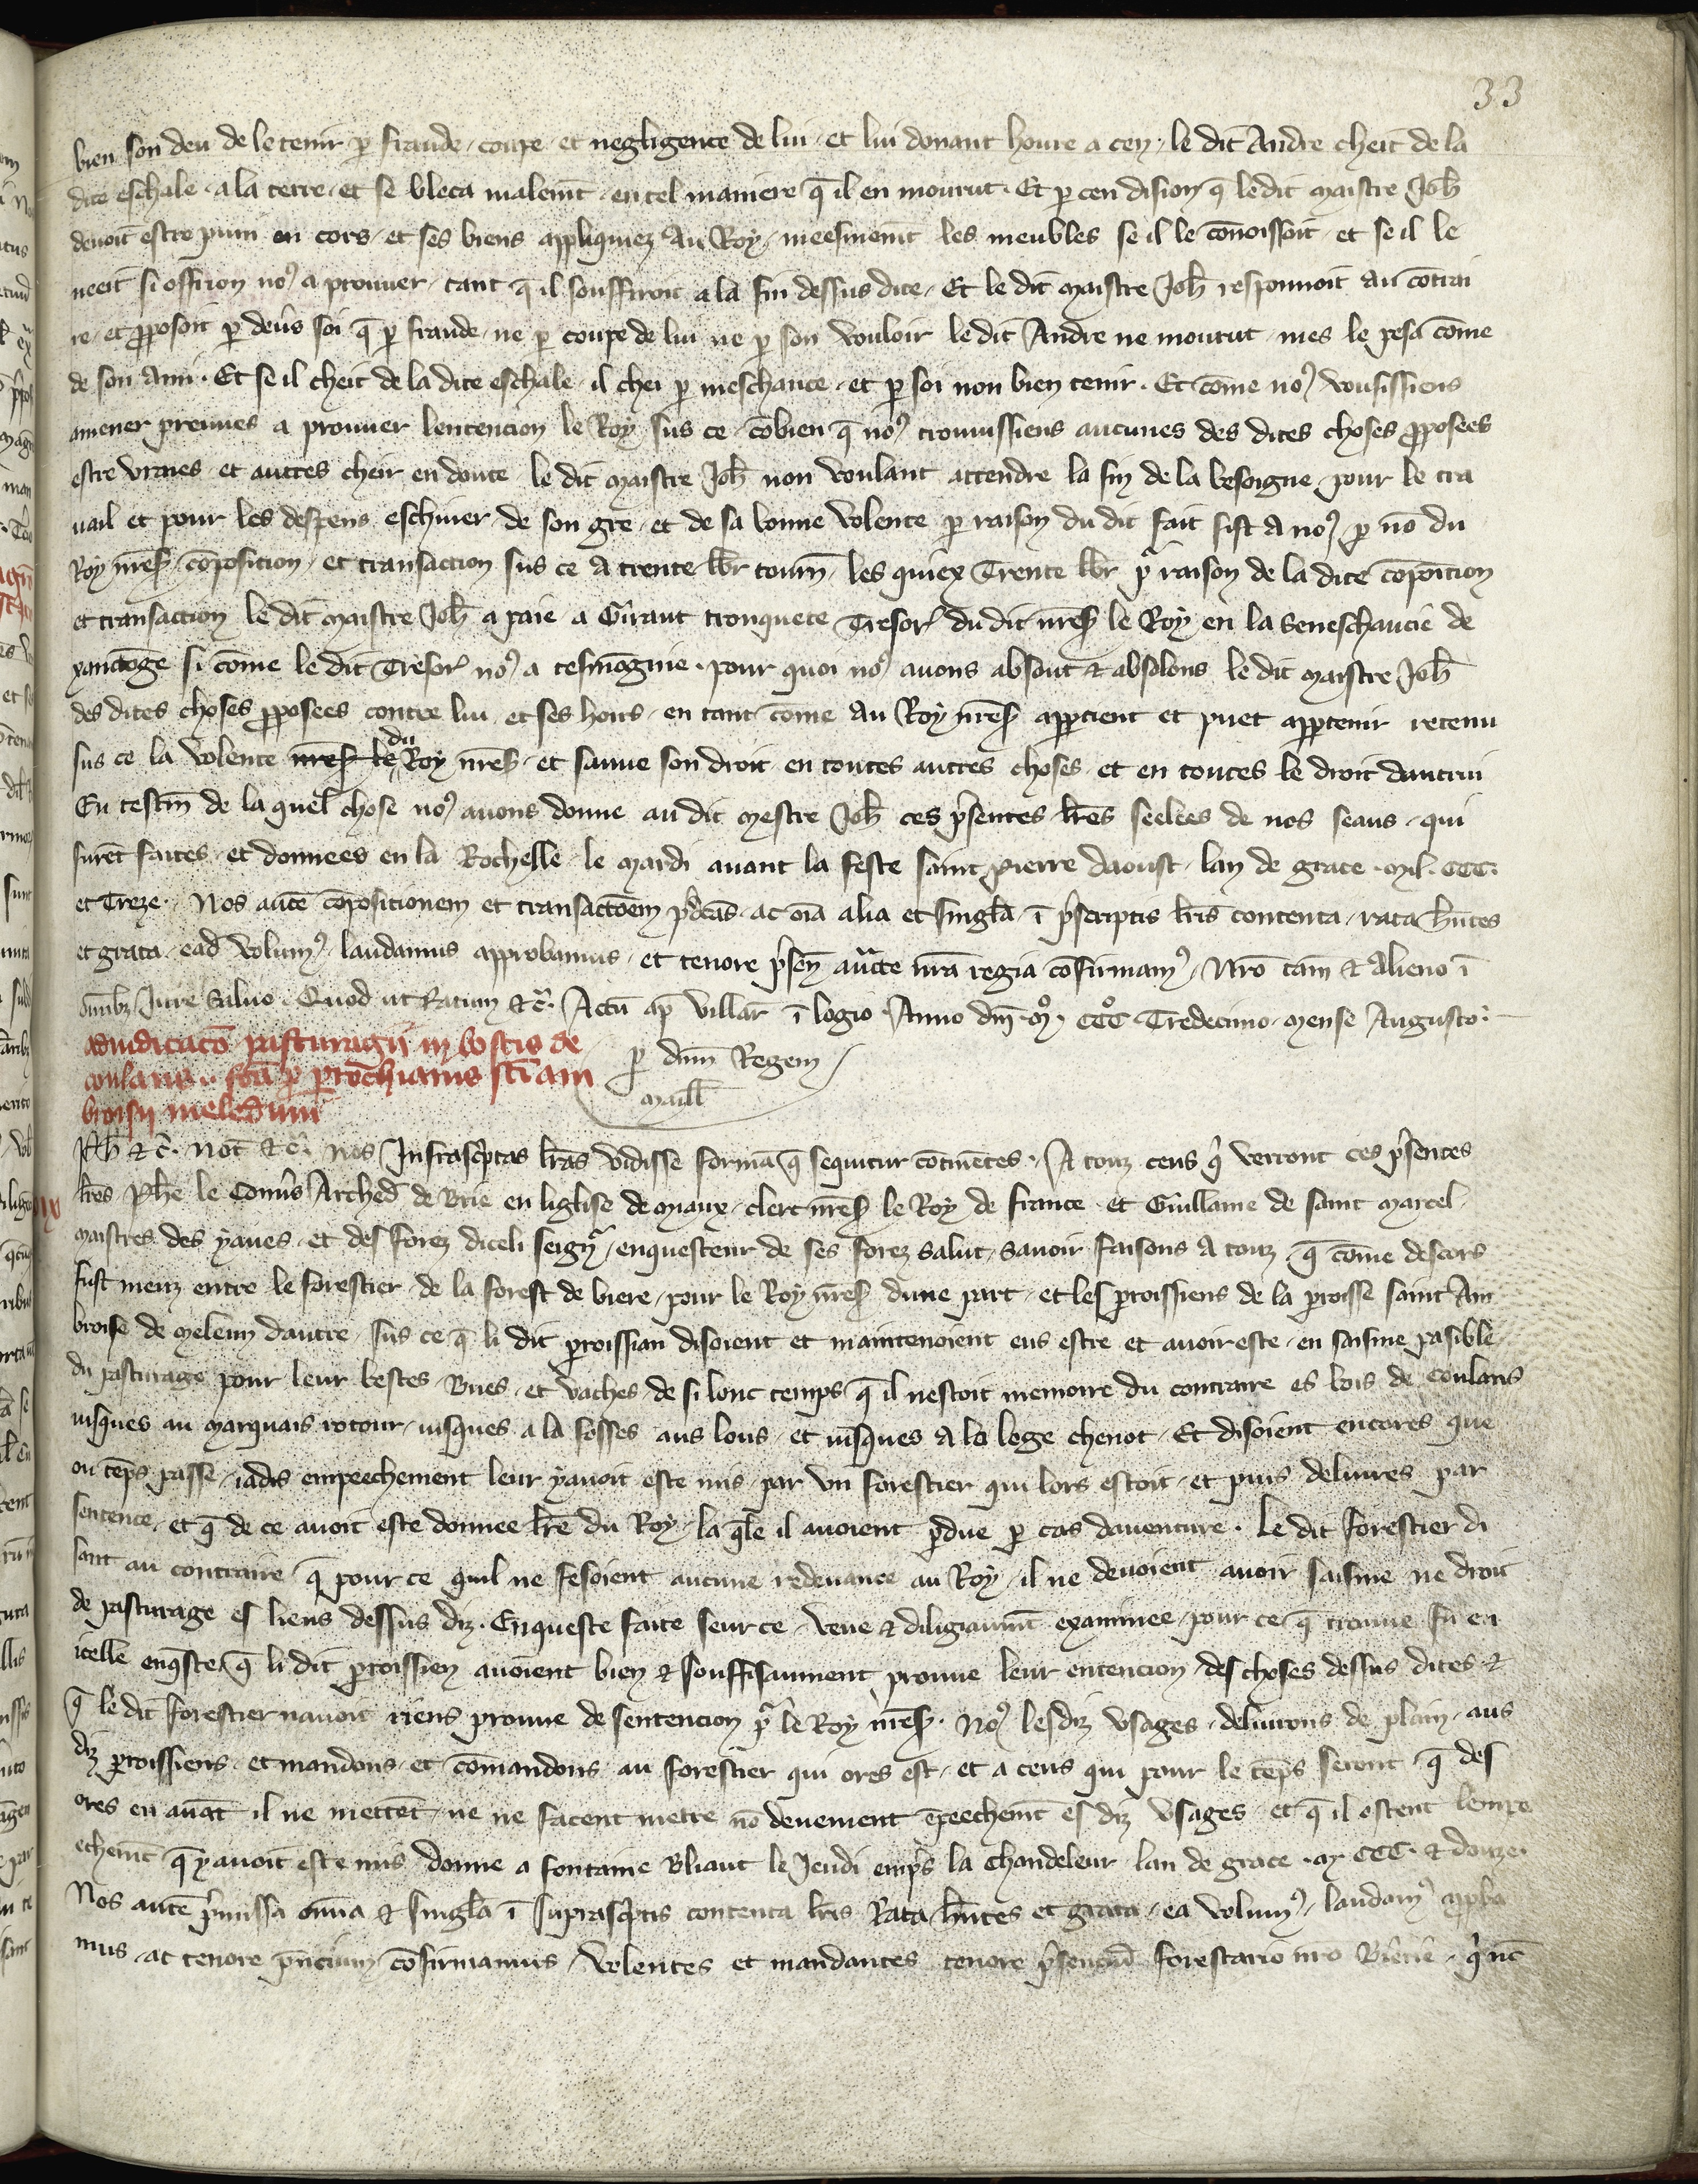 33
bien son deu de le tenir ꝑ fraude coupe et negligence de lui et lui donant houre a cen le dit Andre cheit de la
dite eschale a la terre et se bleca malemt̄ en tel maniere q̄ il en mourut Et ꝑ cen dision q̄ le dit maistre Joh̄
deuoit estre puni en cors et ses biens appliquiez au Roy meesmemt̄ les meubles se il le cōnoissoit et se il le
neeit si offiron noꝰ a prouuer tant q̄ il souffiroit a la fin dessus dite Et le dit maistre Joh̄ responnoit au cōtrai
re et ꝓposoit ꝑ deus soi q̄ ꝑ fraude ne ꝑ coupe de lui ne ꝑ son vouloir le dit Andre ne mourut mes le pesa cōme
de son ami Et se il cheit de la dite eschale il chei ꝑ meschance et ꝑ soi non bien tenir Et cōme noꝰ vousissiens
amener preuues a prouuer lentencion le Roy sus ce cōbien q̄ noꝰ trouuissiens aucunes des dites choses ꝓposees
estre vraies et autres cheir en doute le dit maistre Joh̄ non voulant attendre la fin de la besoigne pour le tra
uail et pour les despens eschiuer de son gre et de sa bonne volente ꝑ raison du dit fait fist a noꝰ ꝑ nō du
Roy nr̄es cōposicion et transaction sus ce a trente lbr tourn̄ les quiex Trente lbr pͬ raison de la dite cōpoicion
et transaction le dit maistre Joh̄ a paie a Giraut tronquete Tresor du dit nr̄es le Roy en la Seneschaucie de
xanctōge si cōme le dit Tresor noꝰ a tesmōgnie pour quoi noꝰ auons absout & absolons le dit maistre Joh̄
des dites choses ꝓposees contre lui et ses hoirs en tant cōme au Roy nr̄es apꝑtient et puet apꝑtenir retenu
sus ce la volente nr̄es le du Roy nr̄es et sauue son droit en toutes autres choses et en toutes le droit dautrui
En testm̄ de la quel chose noꝰ auons donne au dit mestre Joh̄ ces p̄sentes lr̄es seelees de nos seaus qui
furēt faites et donnees en la Rochelle le mardi auant la feste saint pierre daoust lan de grace mil CCC
et Treze Nos autē cōpositionem et transactōem p̄dcās ac oīa alia et singl̄a ī p̄scriptis lr̄is contenta rata hn̄tes
et grata ead̄ volumꝰ laudamus approbamus et tenore p̄sen̄ auc̄te nr̄a regia cōfirmamꝰ Nr̄o tam̄ & alieno ī
omībꝫ Jure saluo Quod ut Ratum &c̄ Actū ap̄ villar̄ ī logio Anno dn̄i mͦ CCCͦ Tredecimo mense Augusto
adiudicacō pasturagii in boscis de
coulans fcā ꝑ ꝑrochianis sc̄i am
brosii meledun̄
ꝑ dn̄m Regem
maill̄
Ph̄ &c̄ Not̄ &c̄ nos Infrascp̄tas lr̄as vidisse formā q̄ sequitur cōtinētes A touz ceus qͥ verront ces p̄sentes
lr̄es Phē le Conus Arched̄ de Brie en liglise de miaux clerc nr̄es le Roy de france et Guillaume de saint marcel
maistres des yaues et des forez diceli seigͬ enquesteur de ses forez salut sauoir faisons a touz q̄ cōme descors
fust meuz entre le forestier de la forest de biere pour le Roy nr̄es dune part et les ꝑroissiens de la ꝑroisse saint Am
broise de meleun dautre sus ce q̄ li dit ꝑroissian disoient et maintenoient eus estre et auoir este en saisine pasible
du pasturage pour leur bestes Bues et vaches de si lonc temps q̄ il nestoit memoire du contraire es bois de coulans
iusques au marquais rotour iusques a la fosses aus lous et iusques a la loge chenot Et disoient encores que
ou tēps passe iadis empeechement leur yauoit este mis par vn forestier qui lors estoit et puis deliures par
sentence et q̄ de ce auoit este donnee lr̄e du Roy la qͣle il auoient ꝑdue ꝑ cas dauenture le dit forestier di
sant au contraire q̄ pour ce quil ne fesoient aucune redeuance au Roy il ne deuoient auoir saisine ne droit
de pasturage es lieus dessus diz Enqueste faite seur ce veue & diligiaumt̄ examinee pour ce q̄ trouue fu en
icelle enqͤste q̄ li dit ꝑroissien auoient bien & souffisaument prouue leur entencion des choses dessus dites &
q̄ le dit forestier nauoit riens prouue de sentencion pͬ le Roy nr̄es Noꝰ lesdiz vsages deliurons de plain aus
diz ꝑroissiens et mandons et cōmandons au forestier qui ores est et a ceus qui pour le tēps seront q̄ des
ores en auāt il ne mettēt ne ne facent mettre nō deuement ēpeechemt̄ es diz vsages et q̄ il ostent lempe
echemt̄ q̄ yauoit este mis donne a fontaine Bliaut le Jeudi emp̄s la chandeleur lan de grace m CCC & douze
Nos autē p̄missa omīa & singl̄a ī suprascp̄tis contenta lr̄is Rata hn̄tes et grata ea volumꝰ laudamꝰ apꝓba
mus ac tenore pn̄cium cōfirmamus volentes et mandantes tenore p̄senciū forestario nr̄o Bierie qͥ nc̄